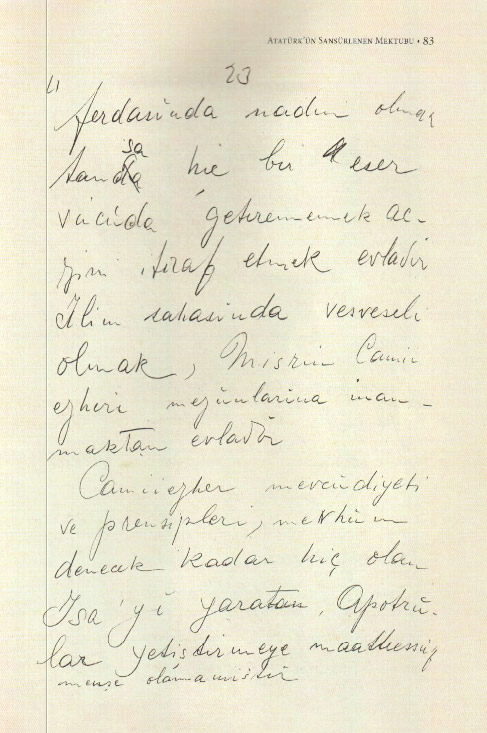 ATATÜRK'ÜN SANSÜRLENEN MEKTUBU • 83
23
ferdasında nadim olmak
tansa hic bir eser
vücüda getirememek ac-
zini itiraf etmek evladır
Ilim sahasında vesveseli
olmak, Mısrın Camii
ezheri mezunlarına inan-
maktan evladır
Camiiezher mevcudiyeti
ve prensipleri, mevhum
denecek kadar hiç olan
Isa'yi yaratan, Apotru-
lar yetiştirmeye maatteessüf
menşe olamamıştır